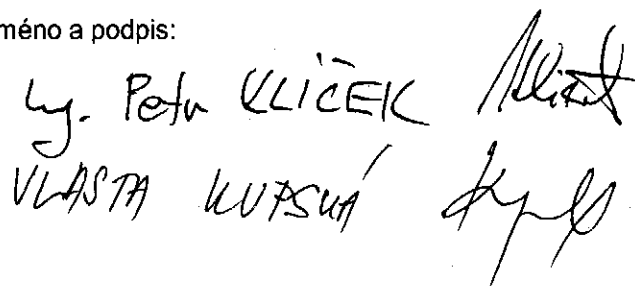 méno a podpis:
Ing. Petr KLÍČEK
VLASTA KUPSKÁ